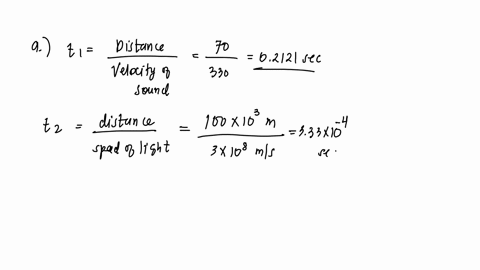 a.) t1 = Distance / Velocity of sound = 70 / 330 = 0.2121 sec
t2 = distance / spead of light = 100 × 10^3 m / 3 × 10^8 m/s = 3.33 × 10^-4 sec.